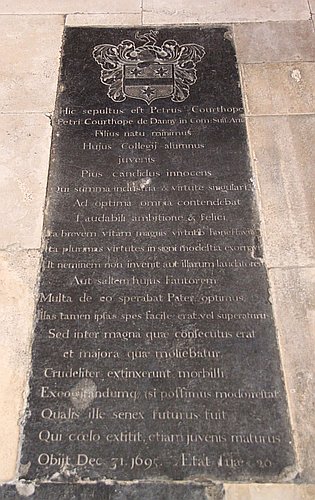 Hic sepultus est Petrus Courthope
Petri Courthope de Danny in Com: Suss: Arm:
Filius natu minimus
Hujus Collegij alumnus
juvenis
Pius candidus innocens
Qui summa industria & virtute singulari
Ad optima omnia contendebat
Laudabili ambitione & felici
Ita brevem vitam magnis virtutib honestavit
Ita plurimas virtutes insigni modestia exornavit
Ut neminem non invenit aut illarum laudatorem
Aut saltem hujus fautorem
Multa de eo sperabat Pater optimus,
Illas tamen ipsas spes facile erat vel superaturus
Sed inter magna quæ consecutus erat
et majora quæ moliebatur
Crudeliter extinxerunt morbilli
Excogitandum (si possimus modo)
Qualis ille senex futurus fuit
Qui cœlo extitit, etiam juvenis maturus
Obijt Dec 31. 1695. Ætat suæ 20